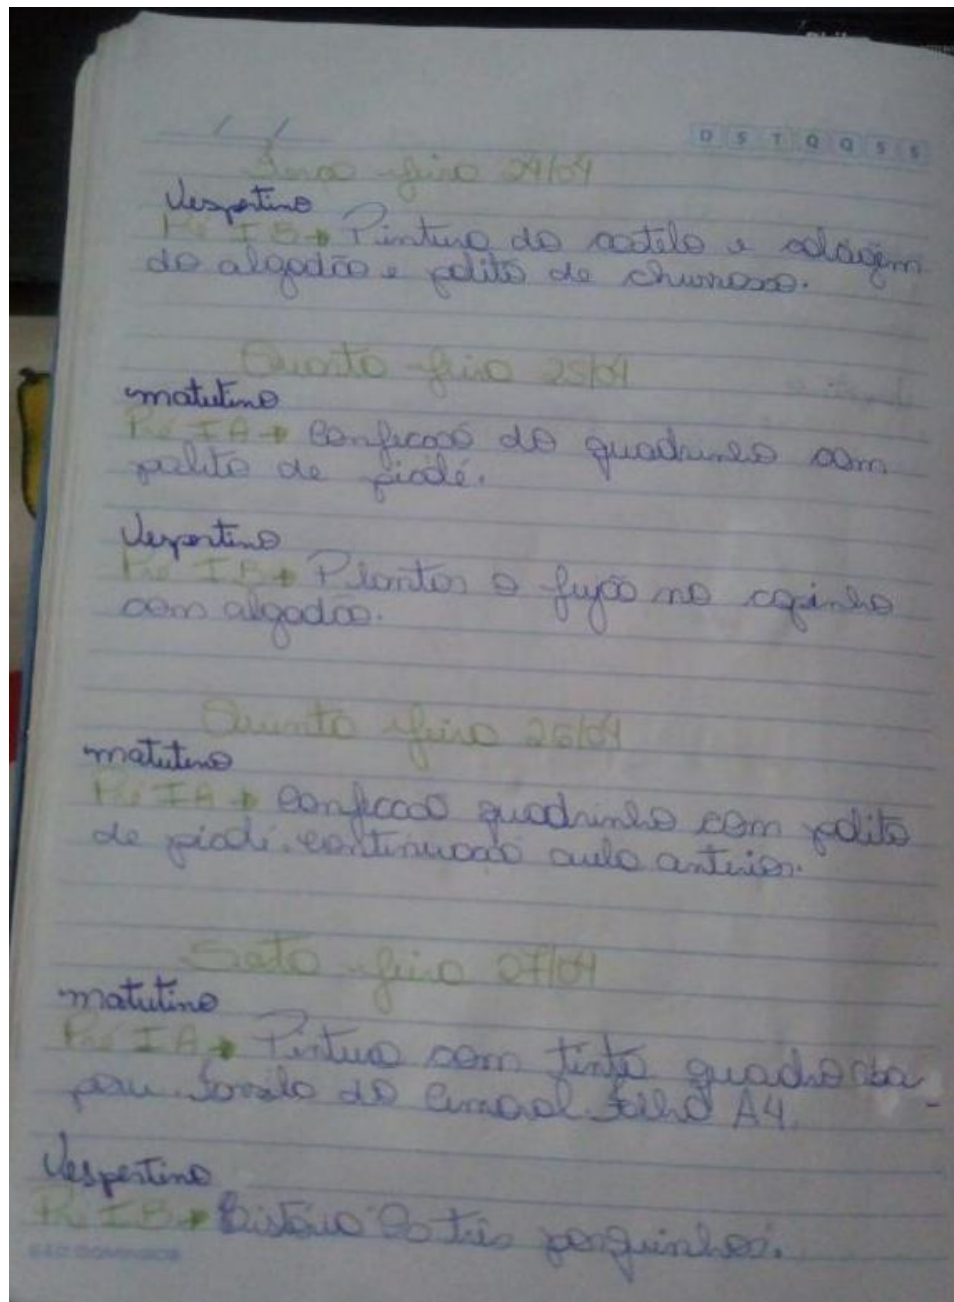 D S T Q Q S S
Terça-feira 24/04
Vespertino
Pré I B → Pintura do castelo e colagem
do algodão e palito de churrasco.
Quarta-feira 25/04
matutino
Pré I A → Confecção do quadrinho com
palito de picolé.
Vespertino
Pré I B → Plantar o feijão no copinho
com algodão.
Quinta-feira 26/04
matutino
Pré I A → Confecção quadrinho com palito
de picolé. continuação aula anterior.
Sexta-feira 27/04
matutino
Pré I A → Pintura com tinta quadro
do folha A4.
Vespertino
Pré I B → História Os três porquinhos.
SÃO DOMINGOS